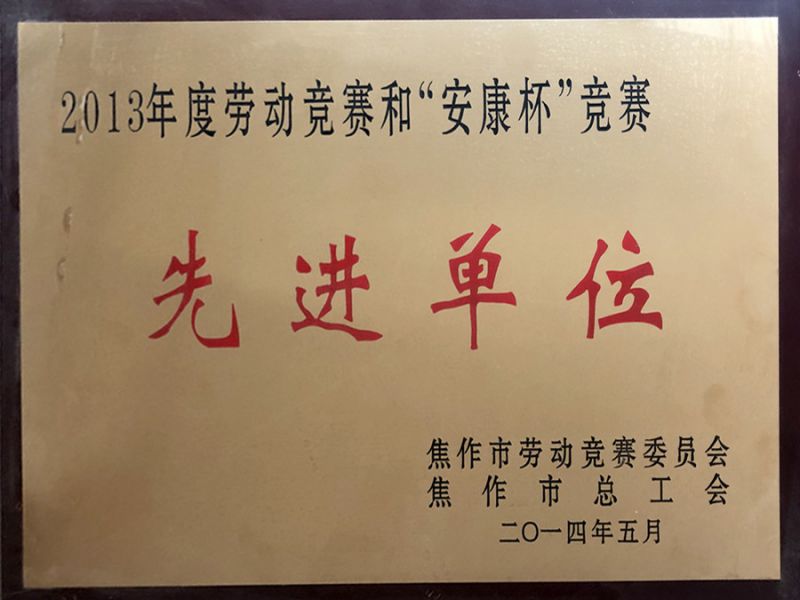 2013年度劳动竞赛和“安康杯”竞赛
先进单位
焦作市劳动竞赛委员会
焦作市总工会
二〇一四年五月